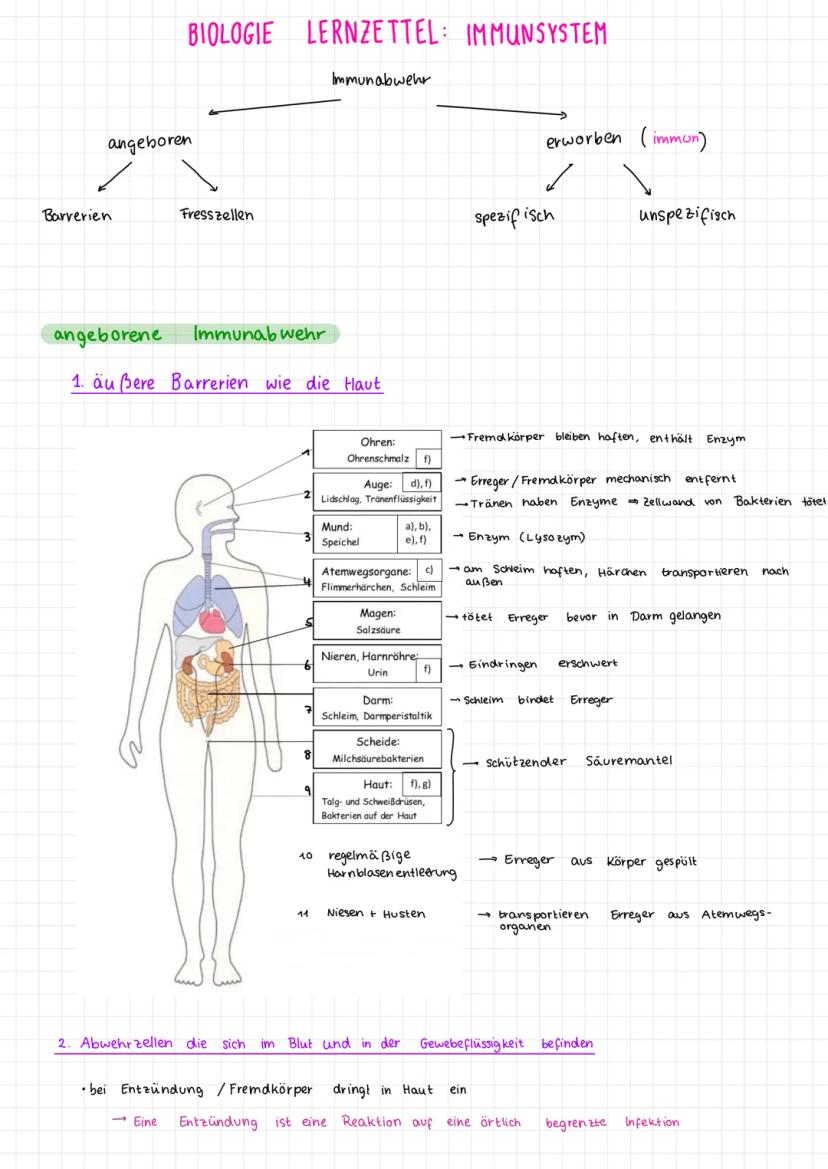 BIOLOGIE LERNZETTEL: IMMUNSYSTEM
Immunabwehr
angeboren
erworben (immun)
Barrerien
Fresszellen
spezifisch
unspezifisch
angeborene Immunabwehr
1. äußere Barrerien wie die Haut
1 Ohren:
Ohrenschmalz f)
→ Fremdkörper bleiben haften, enthält Enzym
2 Auge: d), f)
Lidschlag, Tränenflüssigkeit
→ Erreger/Fremdkörper mechanisch entfernt
→ Tränen haben Enzyme ⇒ Zellwand von Bakterien tötet
3 Mund: a), b),
Speichel e), f)
→ Enzym (Lysozym)
4 Atemwegsorgane: c)
Flimmerhärchen, Schleim
→ am Schleim haften, Härchen transportieren nach
außen
5 Magen:
Salzsäure
→ tötet Erreger bevor in Darm gelangen
6 Nieren, Harnröhre:
Urin f)
→ Eindringen erschwert
7 Darm:
Schleim, Darmperistaltik
→ Schleim bindet Erreger
8 Scheide:
Milchsäurebakterien
9 Haut: f), g)
Talg- und Schweißdrüsen,
Bakterien auf der Haut
→ schützender Säuremantel
10 regelmäßige
Harnblasenentleerung
→ Erreger aus Körper gespült
11 Niesen + Husten
→ transportieren Erreger aus Atemwegs-
organen
2. Abwehrzellen die sich im Blut und in der Gewebeflüssigkeit befinden
• bei Entzündung / Fremdkörper dringt in Haut ein
→ Eine Entzündung ist eine Reaktion auf eine örtlich begrenzte Infektion